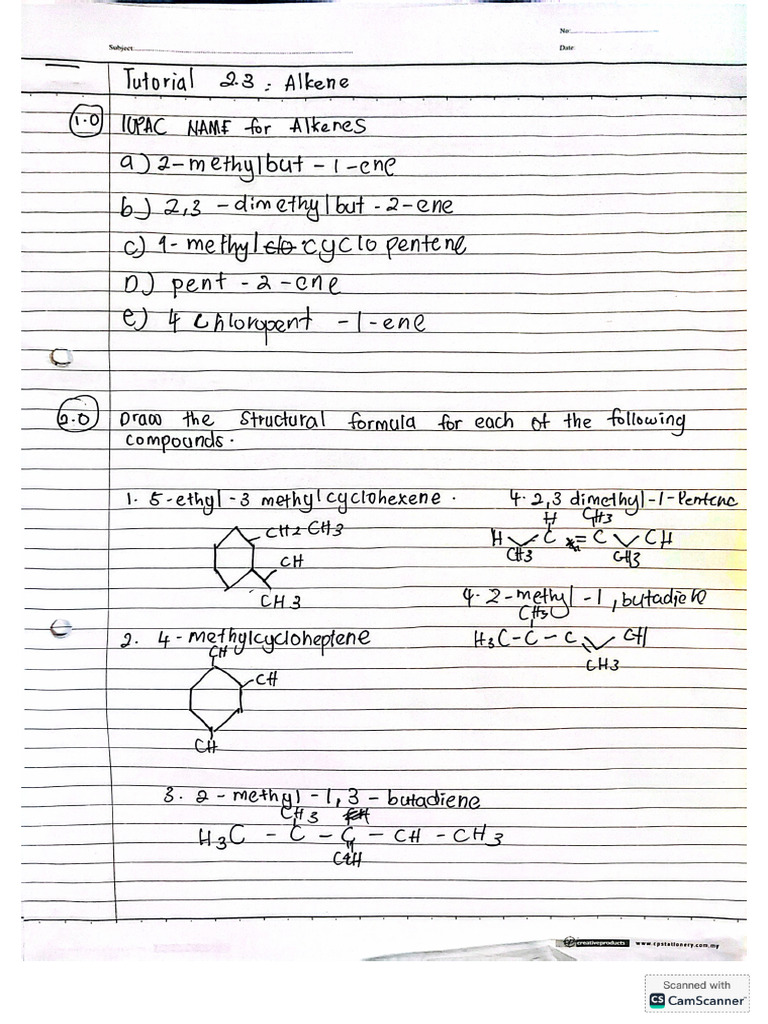 No:
Subject
Date:
Tutorial 2.3 : Alkene
1.0 IUPAC NAME for Alkenes
a) 2-methylbut-1-ene
b) 2,3-dimethylbut-2-ene
c) 1-methyl cyclopentene
D) pent-2-ene
e) 4 chloropent-1-ene
2.0 Draw the structural formula for each of the following
compounds.
1. 5-ethyl-3 methylcyclohexene.
CH2CH3
CH
CH3
4. 2,3 dimethyl-1-Pentene
H CH3
H C = C CH
CH3 CH3
4. 2-methyl-1, butadiene
CH3
H3C-C-C CH
CH3
2. 4-methylcycloheptene
CH
CH
CH
3. 2-methyl-1,3-butadiene
CH3
H3C - C - C - CH - CH3
creativeproducts www.cpstationery.com.my
Scanned with
CS CamScanner